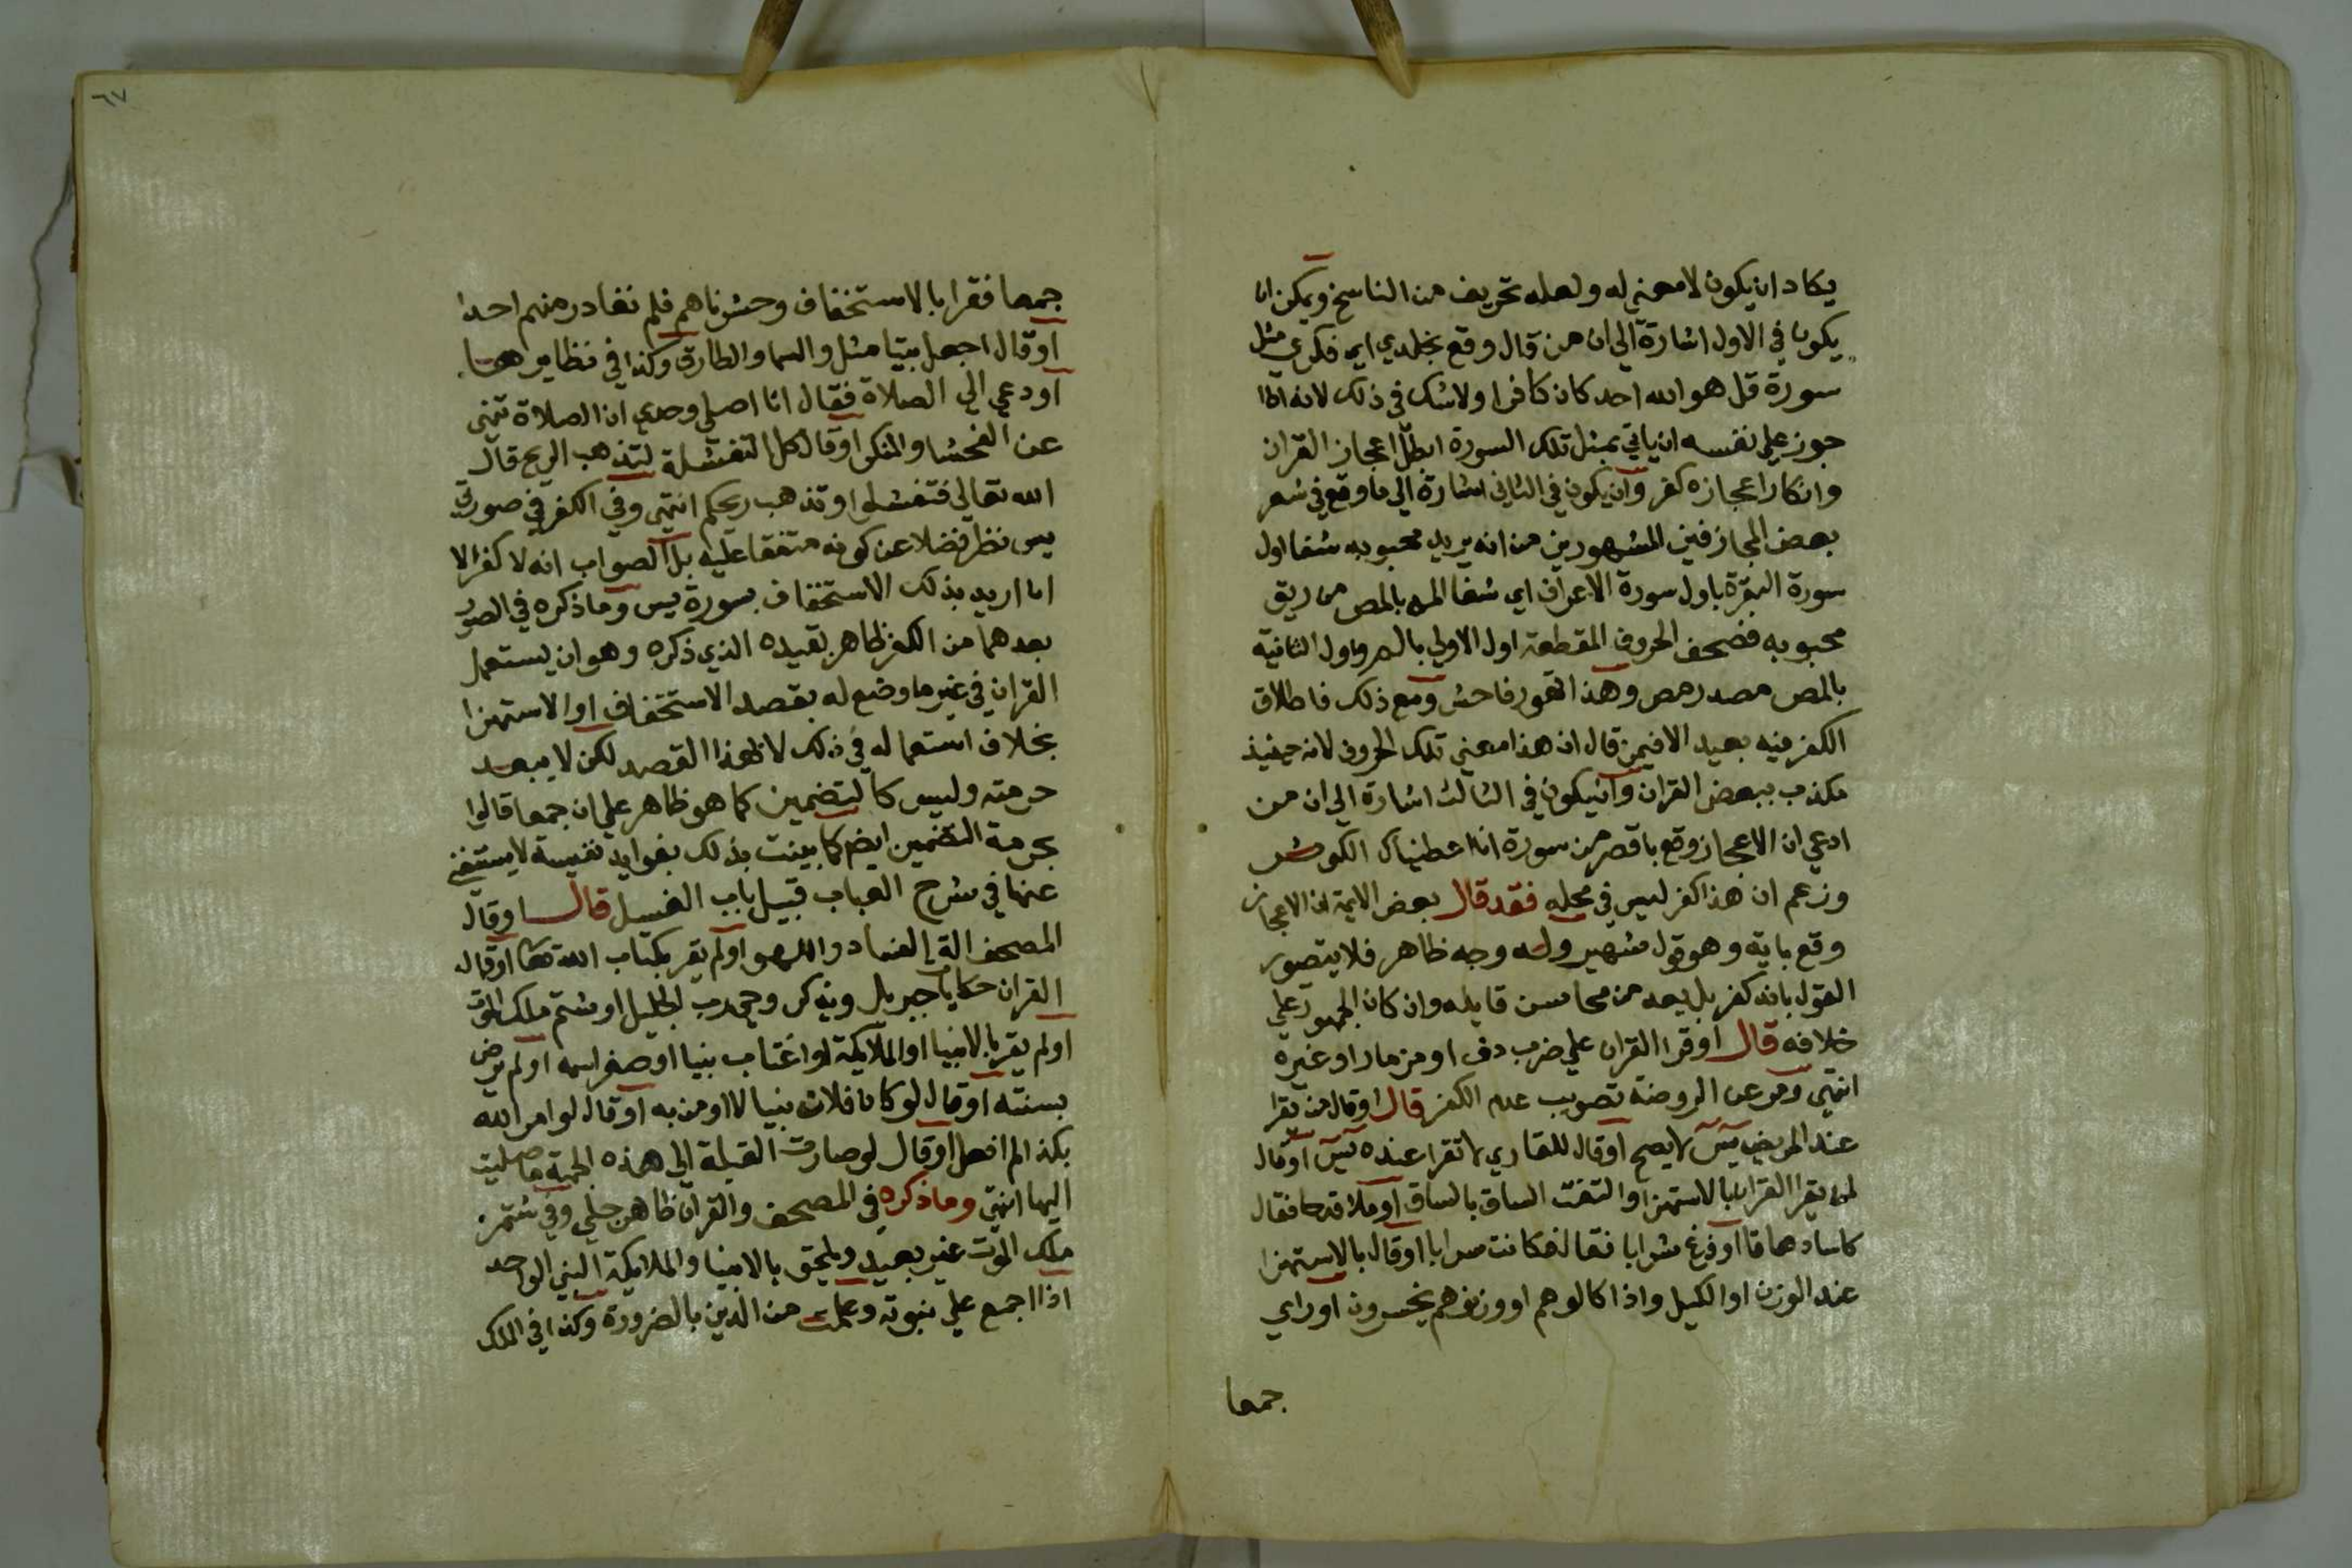 يكاد ان يكون لا معني له ولعله تحريف من الناسخ ويمكن ان
يكون في الاول اشارة الي ان من قال وقع بخلدي اي فكري مثل
سورة قل هو الله احد كان كافرا ولا شك في ذلك لانه اذا
جوز علي نفسه ان ياتي بمثل تلك السورة ابطل اعجاز القران
وانكار اعجازه كفر وان يكون في الثاني اشارة الي ما وقع في شعر
بعض المجازفين المشهورين من انه يريد محبوبه شفا اول
سورة البقرة باول سورة الاعراف اي شفا الم بالمص من ريق
محبوبه فصحف الحروف المقطعة اول الاولي بالم واول الثانية
بالمص مصدر مص وهذا تهور فاحش ومع ذلك فاطلاق
الكفر فيه بعيد الا فيمن قال ان هذا معني تلك الحروف لانه حينيذ
مكذب ببعض القران وان يكون في الثالث اشارة الي ان من
ادعي ان الاعجاز وقع باقصر من سورة انا اعطيناك الكوثر
وزعم ان هذا كفر ليس في محله فقد قال بعض الايمة ان الاعجاز
وقع باية وهو قول شهير وله وجه ظاهر فلا يتصور
القول بانه كفر بل يعد من محاسن قايله وان كان الجمهور علي
خلافه قال او قرا القران علي ضرب دف او مزمار او غيره
انتهي ومر عن الروضة تصويب عدم الكفر قال او قال من يقرا
عند المريض يس لا يصح او قال للقاري لا تقرا عنده يس او قال
لمن يقرا القران بالاستهزا والتفت الساق بالساق او ملا قدحا فقال
كاسا دهاقا او فرغ شرابا فقال فكانت سرابا او قال بالاستهزا
عند الوزن او الكيل واذا كالوهم او وزنوهم يخسرون او راي
جمعا
٦٧
جمعا فقرا بالاستخفاف وحشرناهم فلم نغادر منهم احدا
او قال اجعل بيتا مثل والسما والطارق وكذا في نظايرها
او دعي الي الصلاة فقال انا اصلي وحدي ان الصلاة تنهي
عن الفحشا والمنكر او قال كل التفشلة لتذهب الريح قال
الله تعالي فتفشلوا وتذهب ريحكم انتهي وفي الكفر في صورتي
يس نظر فضلا عن كونه متفقا عليه بل الصواب انه لا كفر الا
ان اريد بذلك الاستخفاف بسورة يس وما ذكره في الصور
بعدهما من الكفر ظاهر بقيده الذي ذكره وهو ان يستعمل
القران في غير ما وضع له بقصد الاستخفاف او الاستهزا
بخلاف استعماله في ذلك لا لهذا القصد لكن لا يبعد
حرمته وليس كالتضمين كما هو ظاهر علي ان جمعا قالوا
بحرمة التضمين ايضا كما بينت ذلك بفوايد نفيسة لا يستغني
عنها في شرح العباب قبيل باب الغسل قال او قال
المصحف الة الفساد واللهو او لم يقر بكتاب الله تعالي او قال
القران حكايات جبريل وينكر وحي رب الجليل او شتم ملك الموت
او لم يقر بالانبيا او الملايكة او اغتاب نبيا او صغر اسمه او لم يرض
بسنته او قال لو كان فلان نبيا لا اومن به او قال لو امر الله
بكذا لم افعل او قال لو صارت القبلة الي هذه الجهة ما صليت
اليها انتهي وما ذكره في المصحف والقران ظاهر جلي وفي شتم
ملك الموت غير بعيد ويلحق بالانبيا والملايكة النبي الواحد
اذا اجمع علي نبوته وعلمت من الدين بالضرورة وكذا في الملك